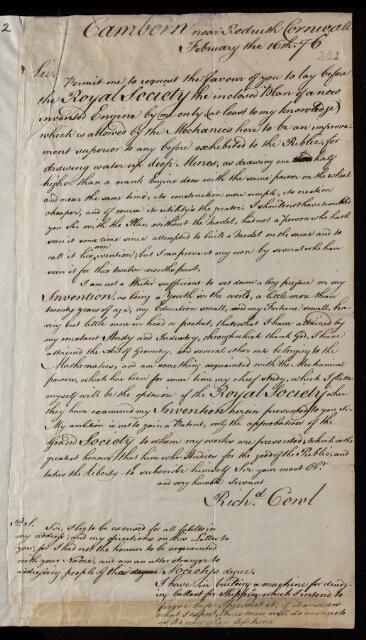 2
Camborn near Redruth Cornwall
February the 16th: 76
202
Sir
Permit me to request the favour of you to lay before
the Royal Society the inclosed Plan of a new
invented Engine by me only (at least to my knowledge)
which is allowed by the Mechanics here to be an improve-
ment superior to any before exhibited to the Public, for
drawing water up deep Mines, as drawing one half
higher than a Engine does with the same power on the wheel
and near the same time; its construction more simple, its erection
cheaper, and of course its utility's the greater. I should not have troubled
you Sir with the Plan without the model, had not a person who hath
seen it some time since attempted to build a Model on the same and to
call it his own invention; but I can prove it my own by several who have
seen it for this twelve months past.
I am not a Writer sufficient to set down a long preface on my
Invention, as being a Youth in the world, a little more than
twenty years of age, my Education small, and my Fortune small, ha-
ving but little more in head or pocket, than what I have attained by
my constant Study and Industry, through which thank God, I have
attained the Art of Geometry, and several other arts belonging to the
Mathematics, and am something acquainted with the Mechanical
powers, which has been for some time my chief study, which I flatter
myself will be the opinion of the Royal Society when
they have examined my Invention herein presented to you Sir.
My ambition is not to gain a Patent, only the approbation of the
Grand Society to whom my works are presented, which is the
greatest honour, that him who Studies for the good of the Public, and
takes the liberty to subscribe himself Sir your most Obt.
and very humble Servant
Richd. Cowl
P.S. Sir, I beg to be excused for all faults in
my address, and my directions on this Letter to
you, for I had not the honour to be acquainted
with your Name, and am an utter stranger to
addressing people of that degree Society's degree.
I have in building a machine for driving
ballast for Shipping which I intend to